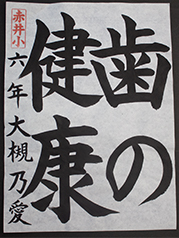 歯の
健康
赤井小
六年大槻乃愛